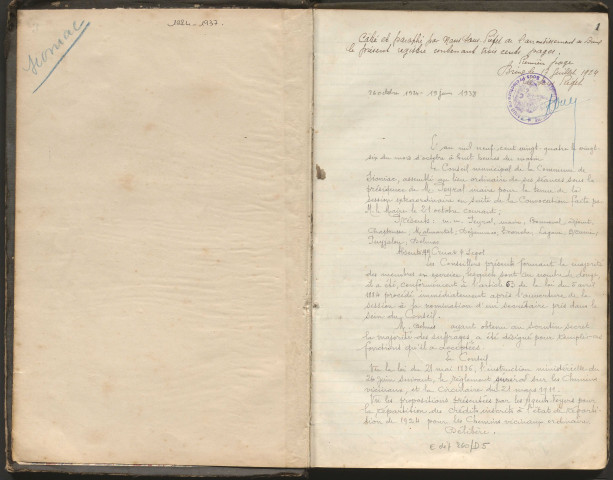 1924-1937.
1
Coté et paraphé par Nous Sous-Préfet de l'arrondissement de
le présent registre contenant trois cents pages.
Première page
juillet 1924
26 octobre 1924 - 19 juin 1938
L'an mil neuf cent vingt quatre le vingt
six du mois d'octobre à huit heures du matin
Le Conseil municipal de la Commune de
assemblé au lieu ordinaire de ses séances sous la
présidence de M. Peyral maire pour la tenue de la
session extraordinaire en suite de la Convocation faite par
M. le Maire le 21 octobre courant;
Présents: M.M. Peyral, maire,
Absents MM
Les Conseillers présents formant la majorité
des membres en exercice,
il a été, conformément à l'article 53 de la loi du 5 avril
1884 procédé immédiatement après l'ouverture de la
session à la nomination d'un secrétaire pris dans le
sein du Conseil.
M. ayant obtenu au scrutin secret
la majorité des suffrages, a été désigné pour remplir ces
fonctions qu'il a acceptées.
Le Conseil
Vu la loi du 21 mai 1836, l'instruction ministérielle du
24 juin suivant, le règlement général sur les Chemins
vicinaux, et la Circulaire du 21 mars 1911.
Vu les propositions présentées par les Agents Voyers pour
la répartition des Crédits inscrits à l'état de réparti
tion de 1924 pour les Chemins vicinaux ordinaires
Délibère.
E dép 260/D5